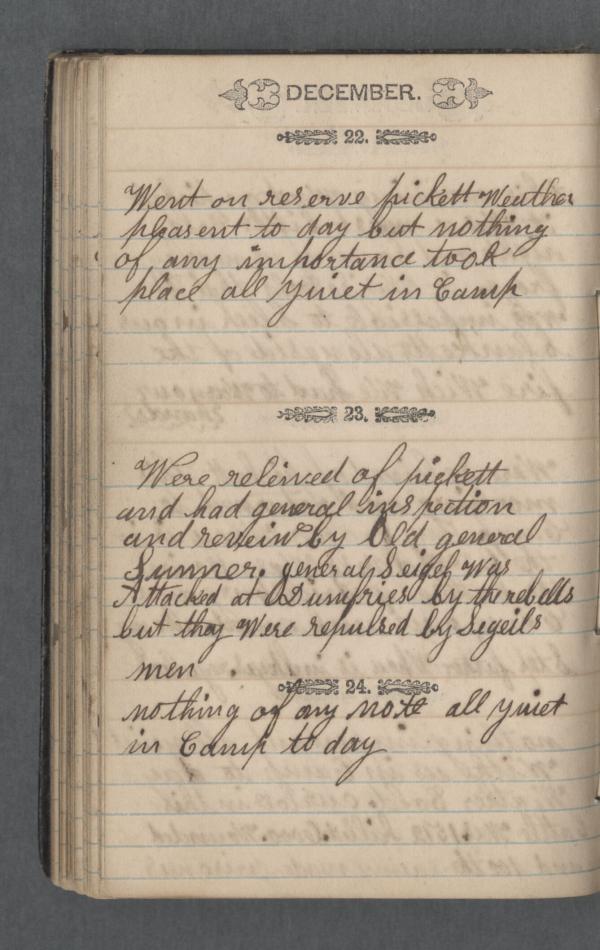 DECEMBER.
22.
Went on reserve pickett Weather
pleasent to day but nothing
of any importance took
place all quiet in Camp
23.
Were releived of pickett
and had general inspection
and reveiw by Old general
Sumner. general Seigel Was
Attacked at Dumfries by the rebells
but they Were repulsed by Segeils
men
24.
nothing of any note all quiet
in Camp to day